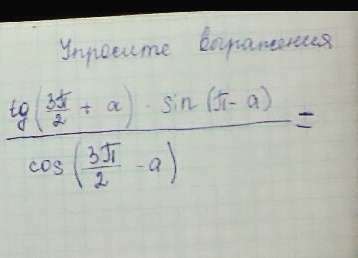 Упростите выражения
tg(3π/2 + a) · sin(π - a)
=
cos(3π/2 - a)